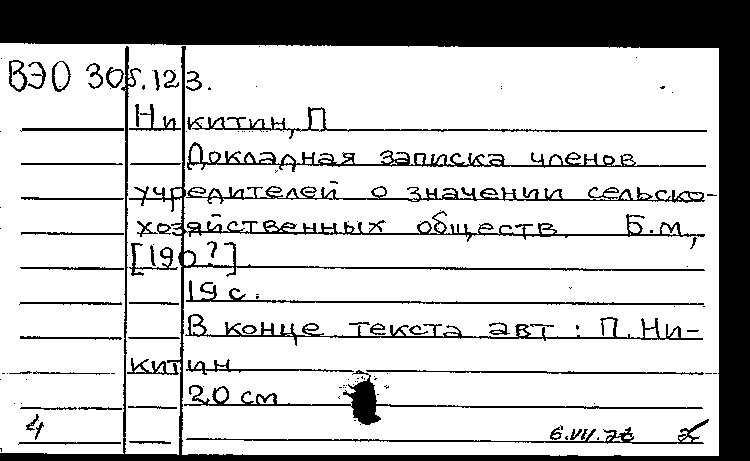 ВЭО 305.123.
Никитин, П
Докладная записка членов
учредителей о значении сельско-
хозяйственных обществ. Б.м.,
[190?].
19 с.
В конце текста авт : П. Ни-
китин.
20 см
4 6.VII.76